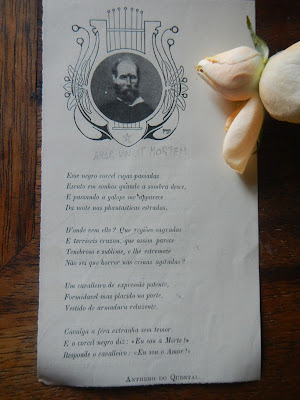 AMOR VINCIT MORTEM
Esse negro corcel cujas passadas
Escuto em sonhos quando a sombra desce,
E passando a galope me apparece
Da noite nas phantasticas estradas,
D'onde vem elle? Que regiões sagradas
E terriveis cruzou, que assim parece
Tenebroso e sublime, e lhe estremece
Não sei que horror nas crinas agitadas?
Um cavalleiro de expressão potente,
Formidavel mas placido no porte,
Vestido de armadura reluzente,
Cavalga a fera extranha sem temor
E o corcel negro diz: «Eu sou a Morte!»
Responde o cavalleiro: «Eu sou o Amor!»
Anthero do Quental